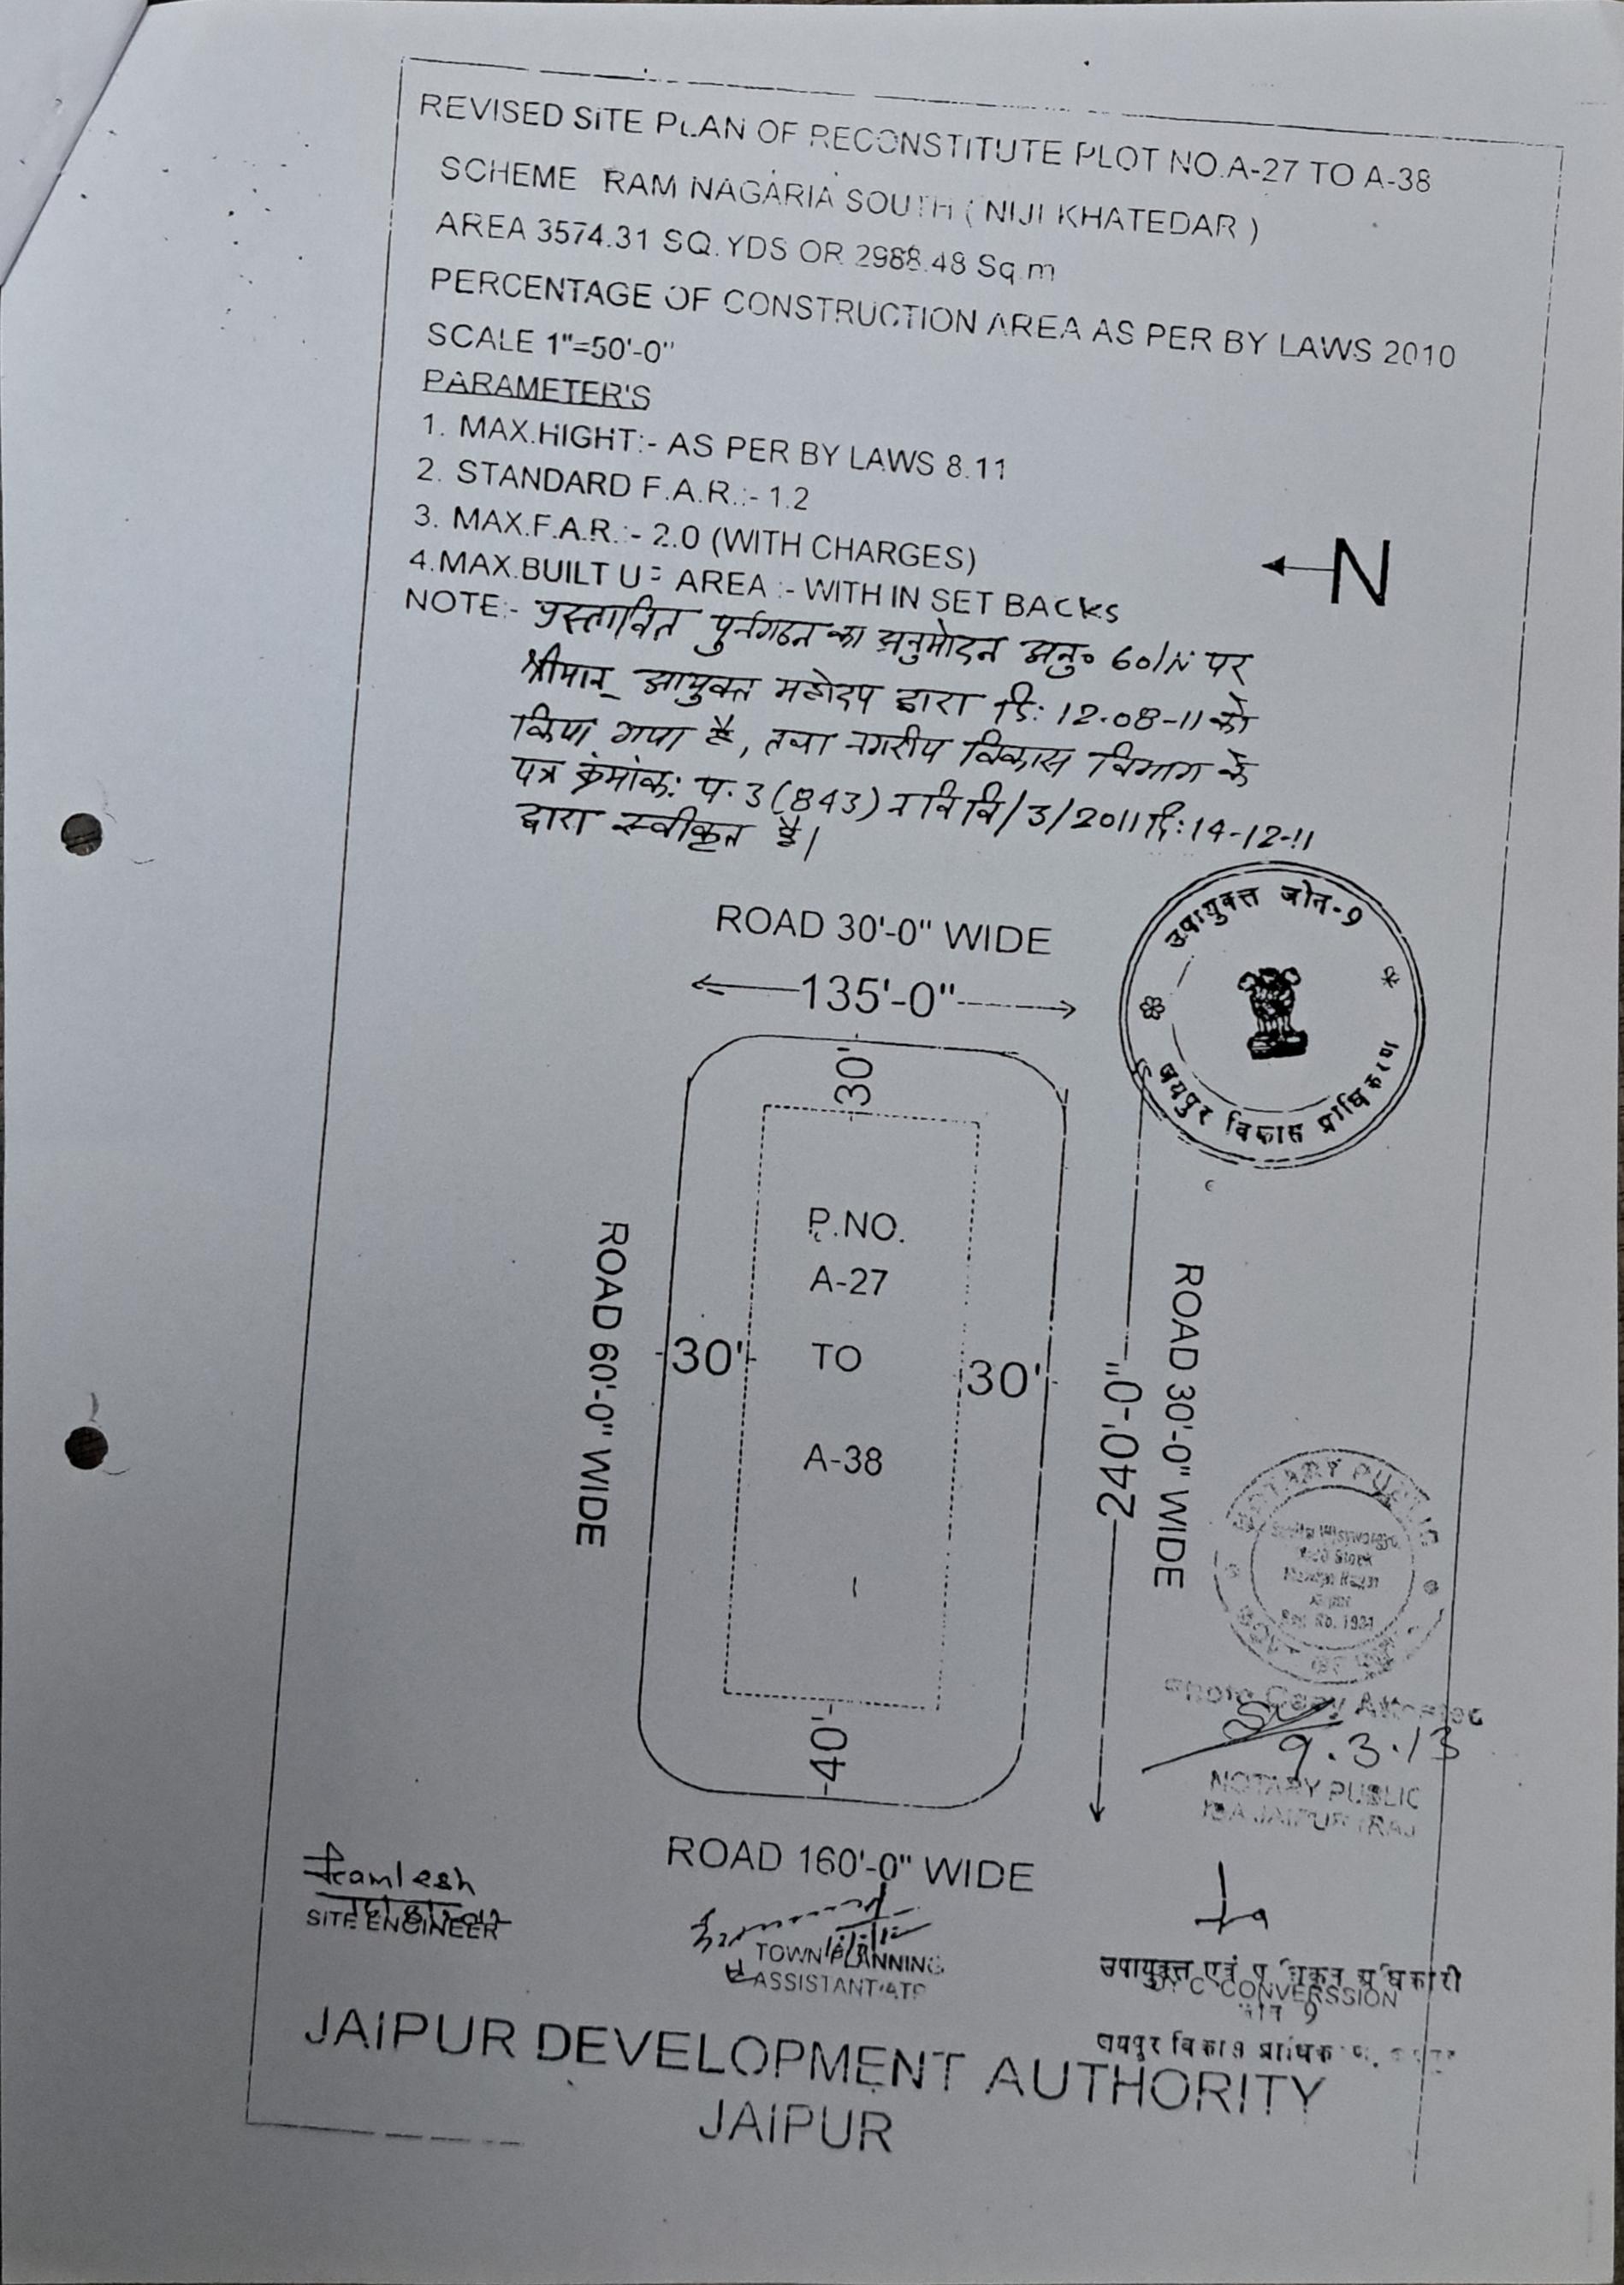 REVISED SITE PLAN OF RECONSTITUTE PLOT NO.A-27 TO A-38
SCHEME RAM NAGARIA SOUTH ( NIJI KHATEDAR )
AREA 3574.31 SQ.YDS OR 2988.48 Sq.m
PERCENTAGE OF CONSTRUCTION AREA AS PER BY LAWS 2010
SCALE 1"=50'-0"
PARAMETER'S
1. MAX.HIGHT:- AS PER BY LAWS 8.11
2. STANDARD F.A.R.:- 1.2
3. MAX.F.A.R.:- 2.0 (WITH CHARGES)
4.MAX.BUILT UP AREA :- WITH IN SET BACKS
N
NOTE:- प्रस्तावित पुर्नगठन का अनुमोदन अनु० 60/N पर
श्रीमान् आयुक्त महोदय द्वारा दि: 12-08-11 को
किया गया है, तथा नगरीय विकास विभाग के
पत्र क्रंमांक: प. 3 (843) नविवि/3/2011 दि: 14-12-11
द्वारा स्वीकृत है।
उपायुक्त जोन-9
जयपुर विकास प्राधिकरण
ROAD 30'-0" WIDE
135'-0"
30'
P.NO.
A-27
TO
A-38
30'
30'
40'
ROAD 60'-0" WIDE
240'-0"
ROAD 30'-0" WIDE
NOTARY PUBLIC
Jaipur
Reg. No. 1924
GOVT OF
Photo Copy Attested
9.3.13
NOTARY PUBLIC
JAIPUR (RAJ
ROAD 160'-0" WIDE
Kamlesh
SITE ENGINEER
TOWN PLANNING
ASSISTANT/ATP
उपायुक्त एवं प्राधिकृत अधिकारी
DY. C CONVERSSION
जोन 9
जयपुर विकास प्राधिकरण,
JAIPUR DEVELOPMENT AUTHORITY
JAIPUR